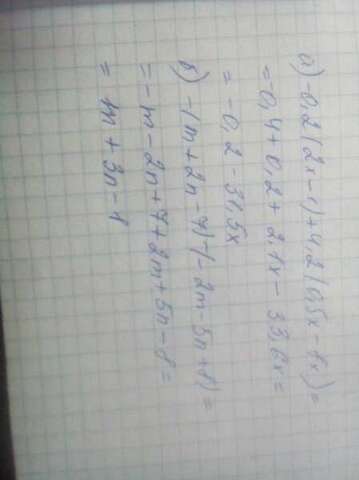 а) -0,2(2x-1)+4,2(0,5x-8x)=
=-0,4+0,2+2,1x-33,6x=
=-0,2-31,5x
б) -(m+2n-7)-(-2m-5n+8)=
=-m-2n+7+2m+5n-8=
= m+3n-1